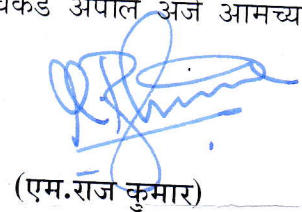 अपील अर्ज आमच्य
(एम.राज कुमार)